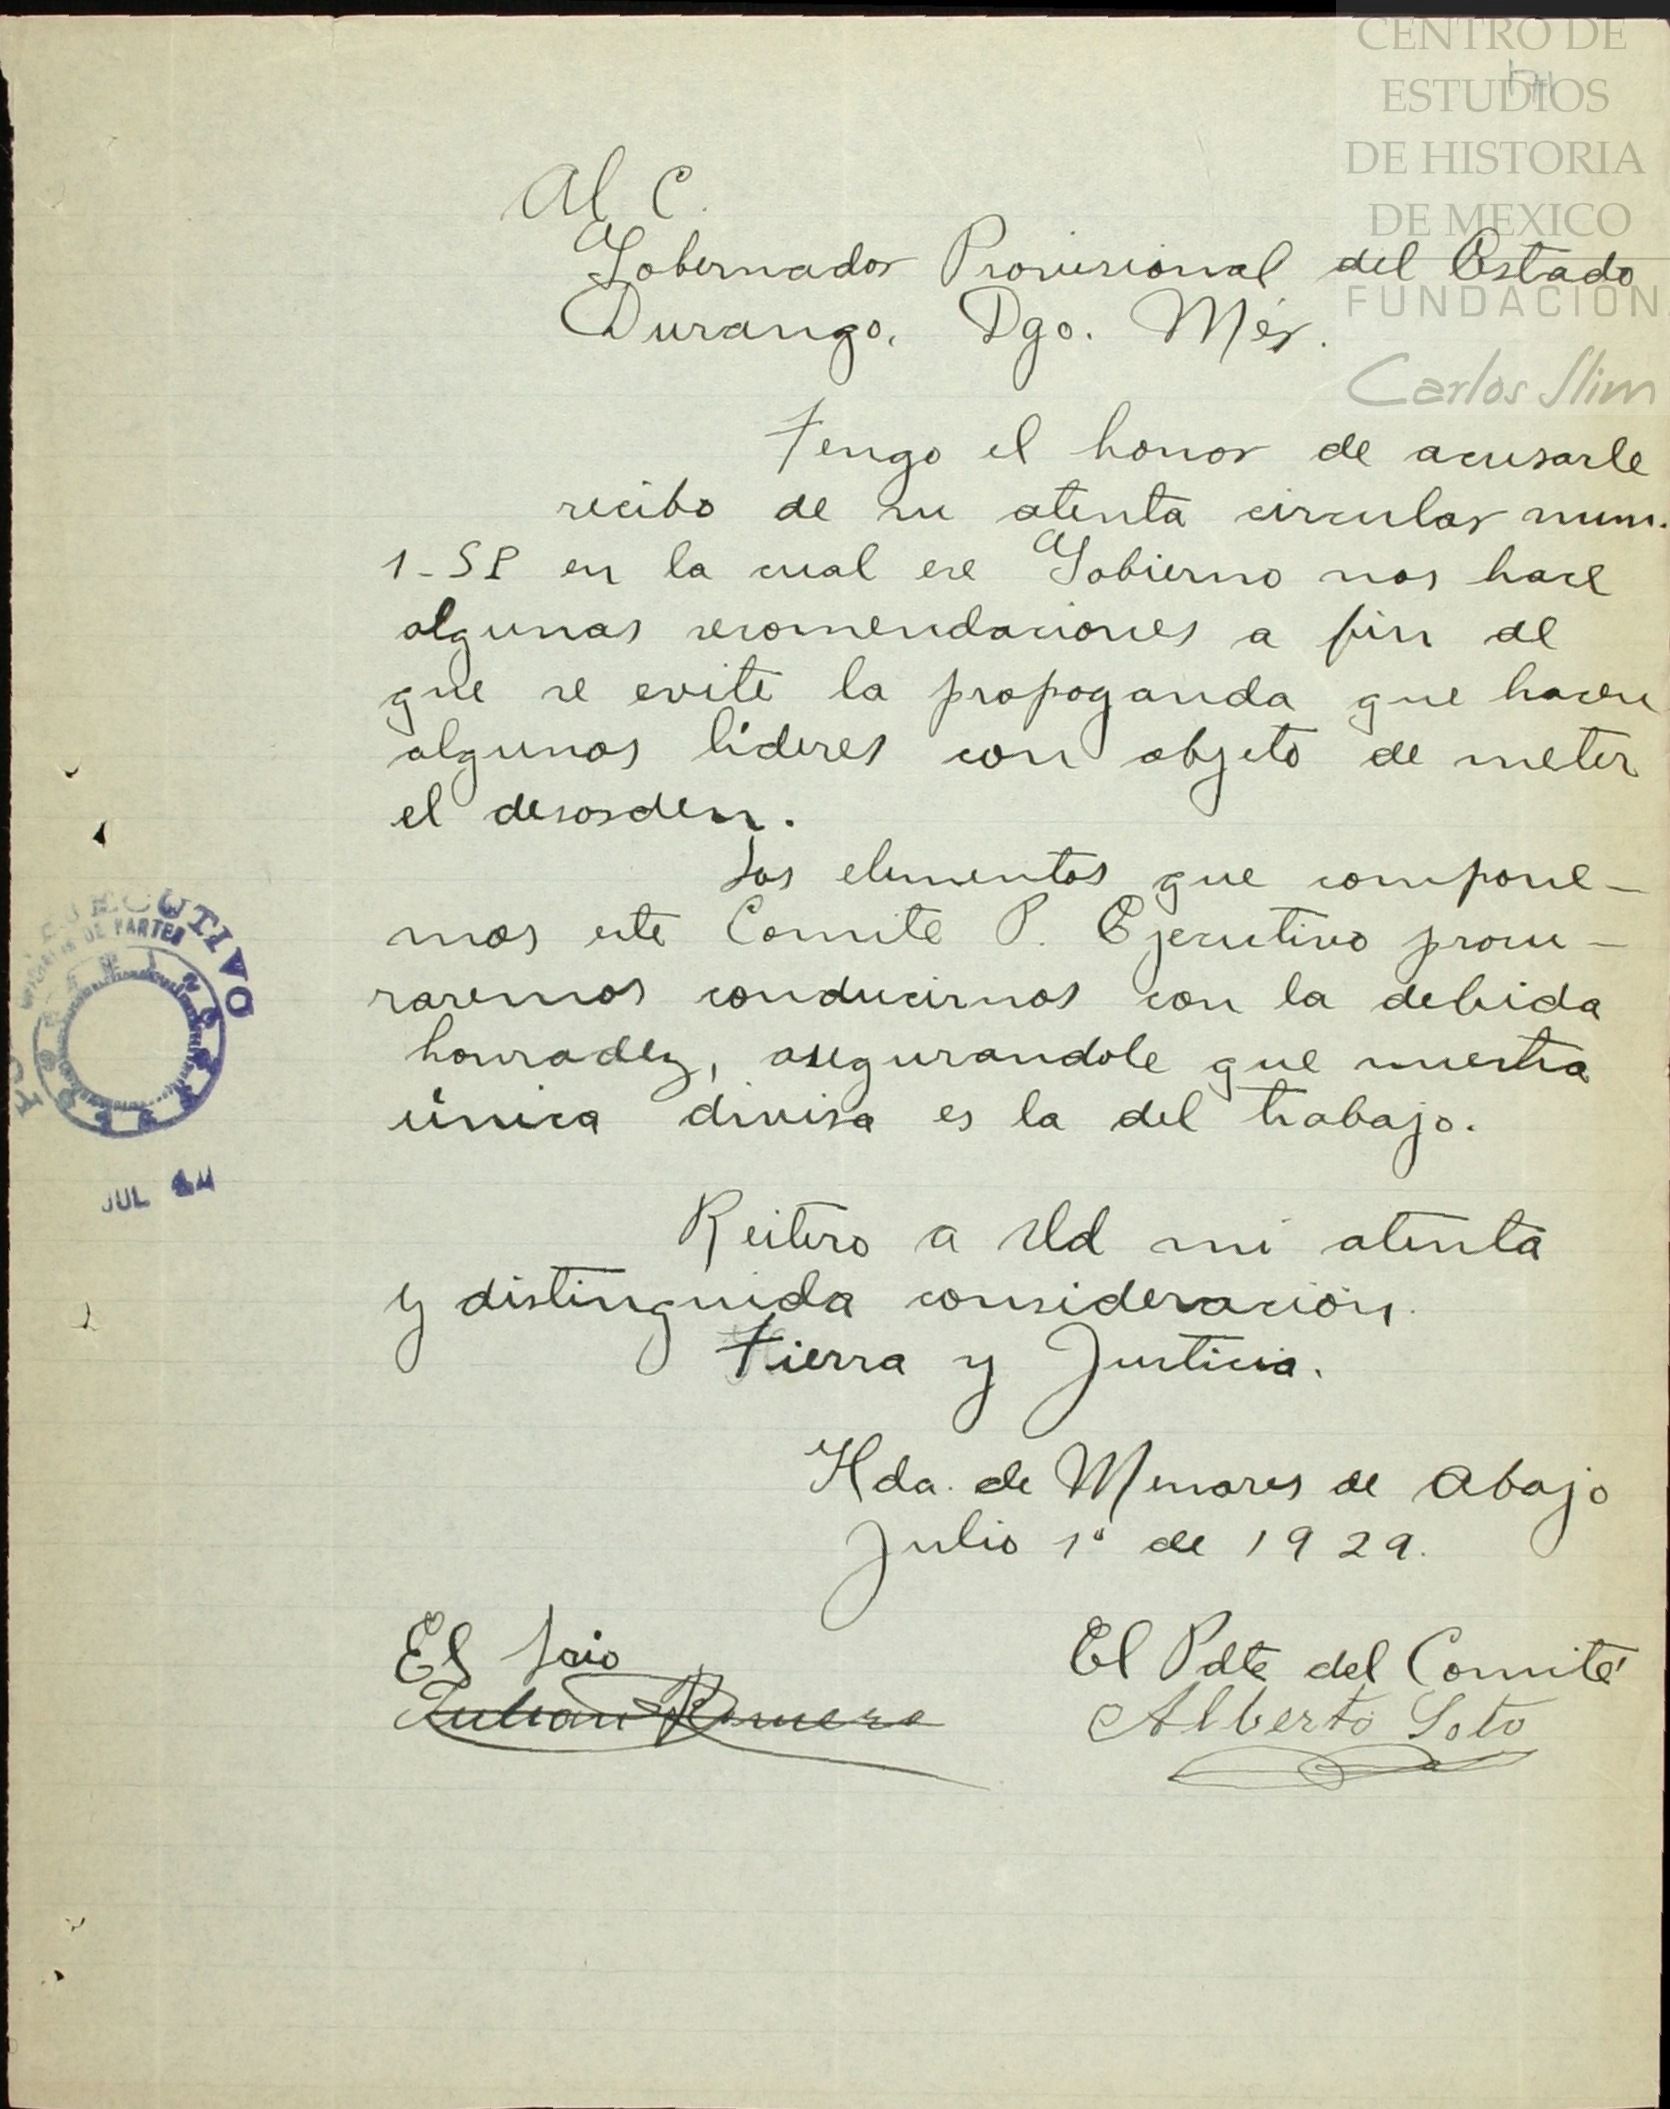 CENTRO DE
ESTUDIOS
DE HISTORIA
DE MEXICO
FUNDACIÓN
Carlos Slim
Al C.
Gobernador Provisional del Estado
Durango, Dgo. Méx.
Tengo el honor de acusarle
recibo de su atenta circular num.
1-SP en la cual ese Gobierno nos hace
algunas recomendaciones a fin de
que se evite la propoganda que hacen
algunos líderes con objeto de meter
el desorden.
Los elementos que compone-
mos este Comite P. Ejecutivo procu-
raremos conducirnos con la debida
honradez, asegurandole que nuestra
única divisa es la del trabajo.
Reitero a Ud mi atenta
y distinguida consideración.
Tierra y Justicia.
Hda. de Menores de Abajo
Julio 1º de 1929.
El Srio
Julian Romero
El Pdte del Comité
Alberto Soto
EJECUTIVO
DE PARTES
JUL